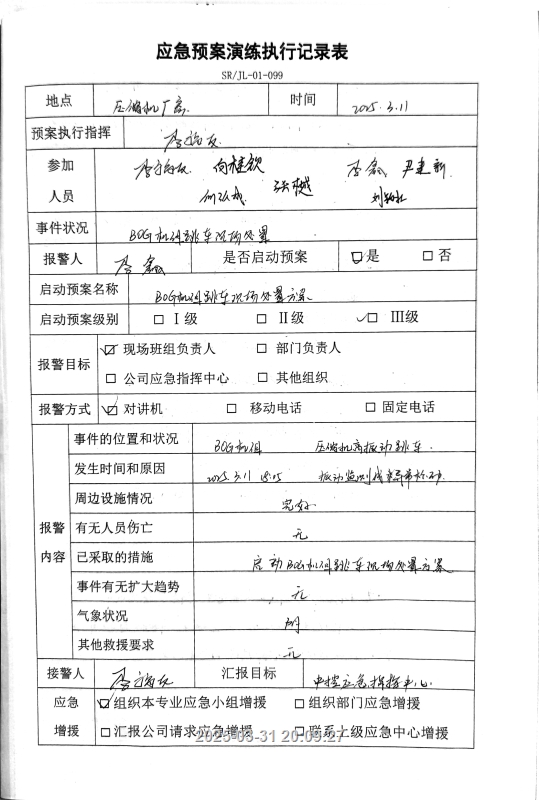 应急预案演练执行记录表
SR/JL-01-099
地点 压缩机厂房 时间 2025.3.11
预案执行指挥
参加 向继钦 李鑫 尹建新
人员 张樾
事件状况 BOG机组跳车现场处置
报警人 李鑫 是否启动预案 ☑是 □否
启动预案名称 BOG机组跳车现场处置方案
启动预案级别 □Ⅰ级 □Ⅱ级 ☑Ⅲ级
报警目标 ☑现场班组负责人 □部门负责人
□公司应急指挥中心 □其他组织
报警方式 ☑对讲机 □移动电话 □固定电话
报警内容
事件的位置和状况 BOG机组 压缩机高振动跳车
发生时间和原因 2025.3.11 振动监测线
周边设施情况 完好
有无人员伤亡 无
已采取的措施 启动BOG机组跳车现场处置方案
事件有无扩大趋势 无
气象状况
其他救援要求 无
接警人 汇报目标 中控应急指挥中心
应急 ☑组织本专业应急小组增援 □组织部门应急增援
增援 □汇报公司请求应急增援 □联系上级应急中心增援
2025-03-31 20:09:27